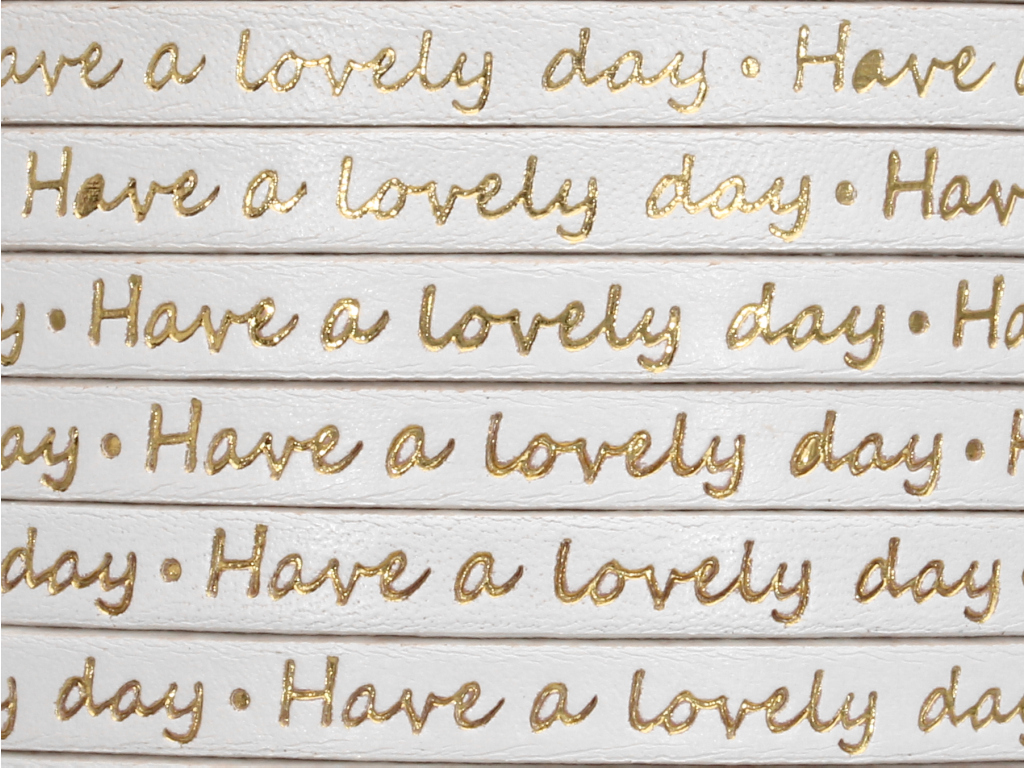 ave a lovely day • Have a
Have a lovely day • Hav
y • Have a lovely day • Ha
ay • Have a lovely day • H
day • Have a lovely day •
y day • Have a lovely day